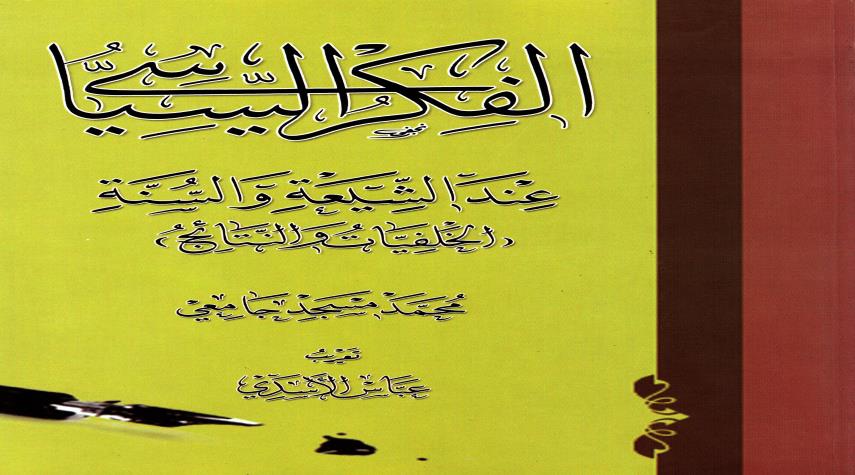 الفِكْرُ السِّيَّاسِيُّ
عِنْدَ الشِّيْعَةِ وَالسُّنَّةِ
«الخَلفِيَّاتُ وَالنَّتَائِجُ»
مُحَمَّدْ مَسْجِدْ جَامِعِيْ
تَعْرِيْبُ
عَبَّاسْ الأَسَدِيْ